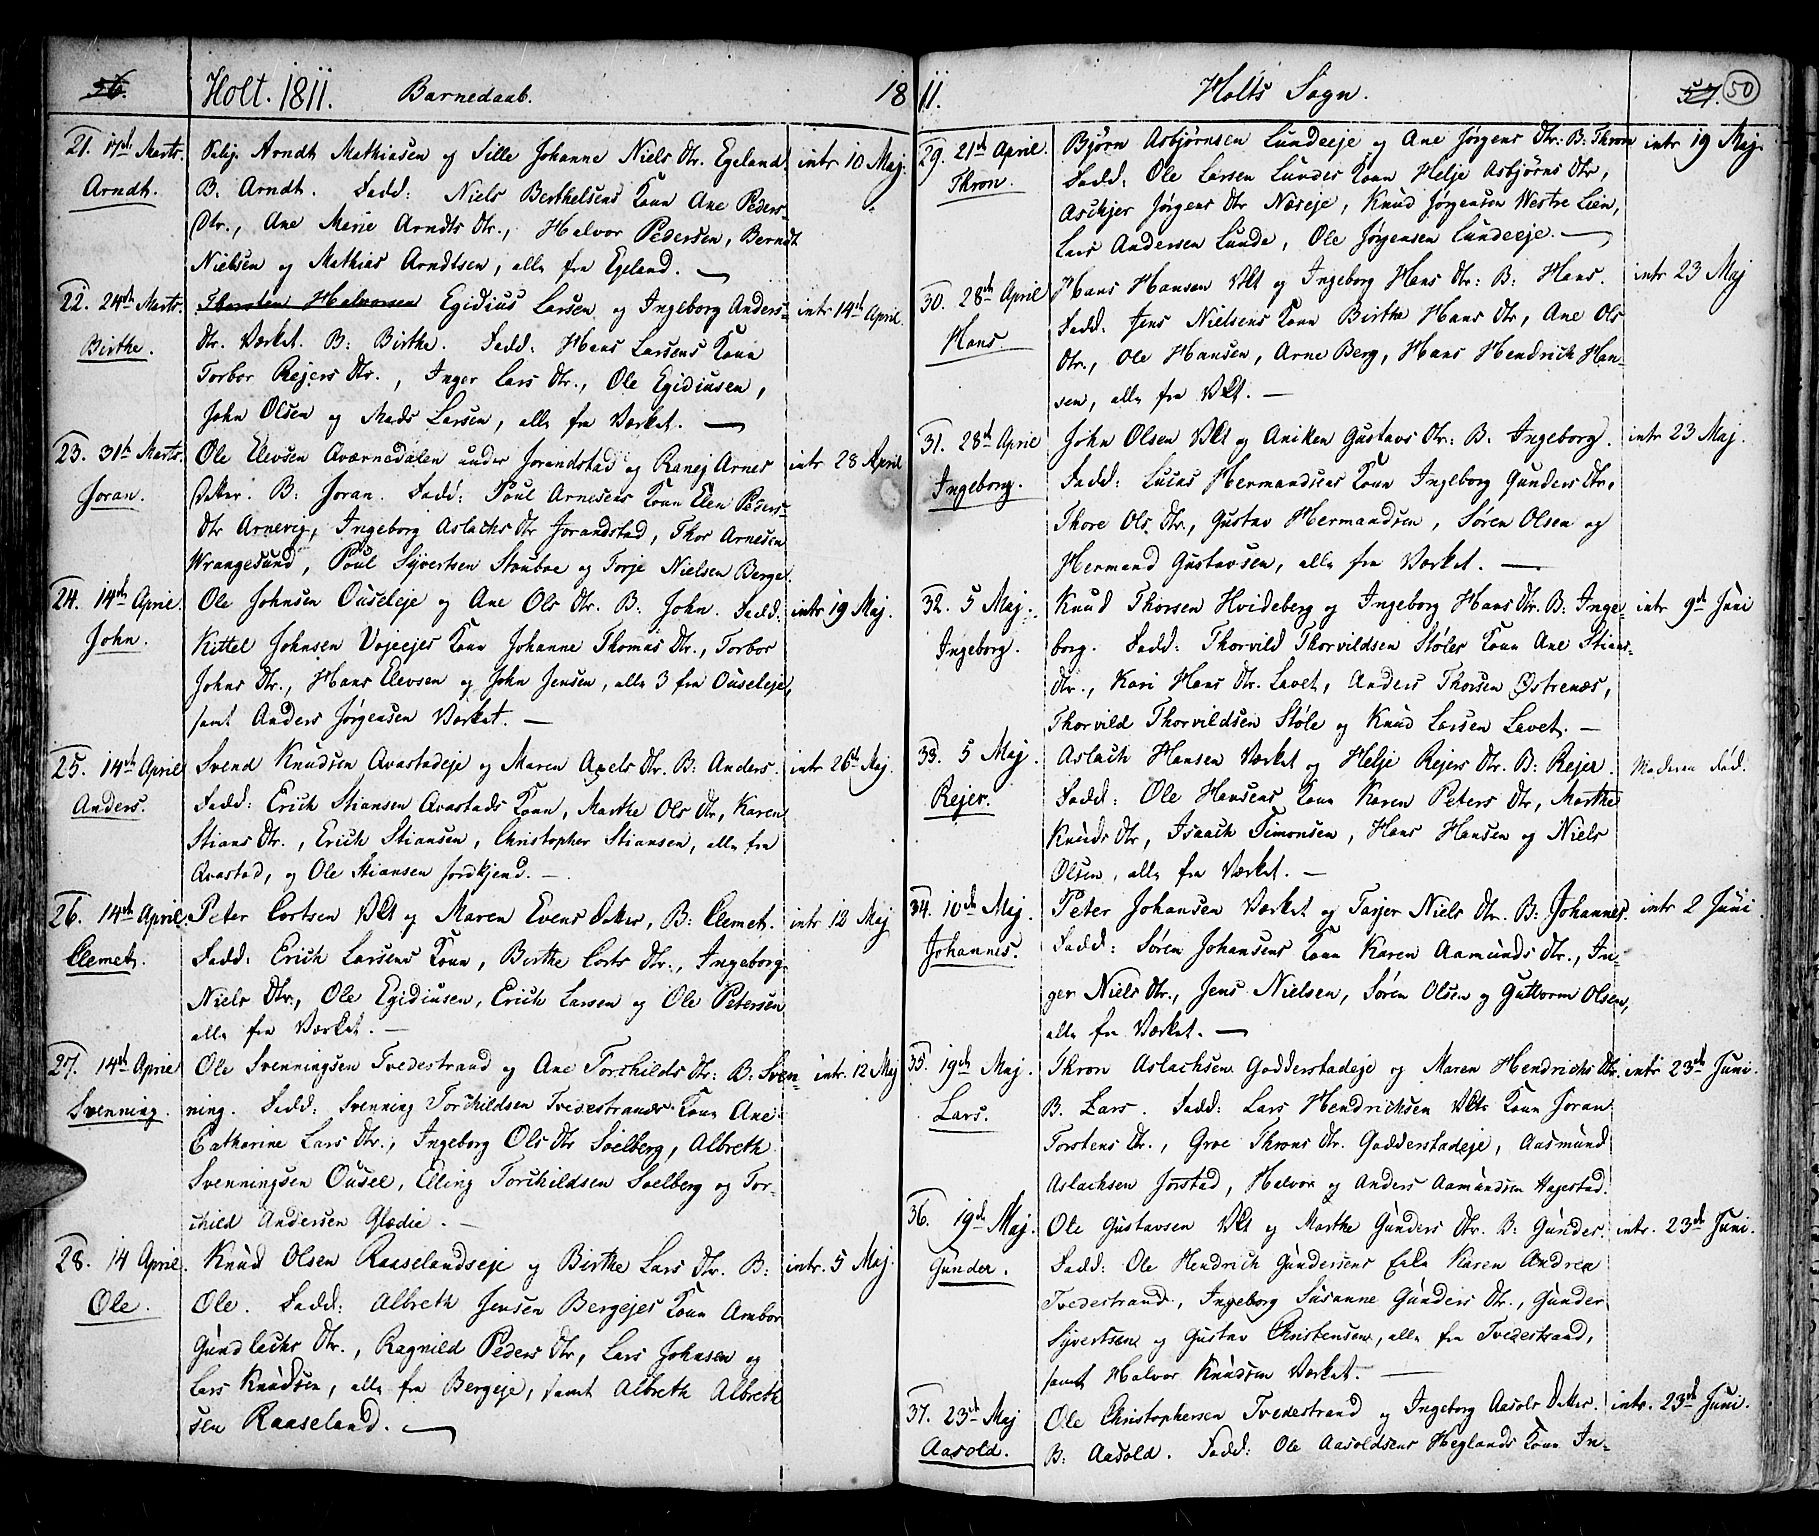 56.
Holt. 1811. Barnedaab. 18
21. 17de Marts. Arndt.
Arndt Mathiasen og Sille Johanne Niels Dtr. Egeland. intr 10 Maj.
B. Arndt. Fadd: Niels Berthelsens Kone Ane Peders-
Dtr., Ane Merie Arndts Dtr., Halvor Pedersen, Berndt
Nielsen og Mathias Arndtsen, alle fra Egeland. —
22. 24de Marts. Birthe.
Thorsten Halvorsen Egidius Larsen og Ingeborg Anders- intr 14de April.
Dtr. Værket. B: Birthe. Fadd: Hans Larsens Kone
Torbor Rejers Dtr., Inger Lars Dtr., Ole Egidiusen,
John Olsen og Mads Larsen, alle fra Værket. —
23. 31te Marts. Joran.
Ole Elevsen Aværnedalen under Jorandstad og Ranej Arnes intr 28 April
Datter. B: Joran. Fadd: Poul Arnesens Kone Elen Peders-
Dtr Arnevig, Ingeborg Aslachs Dtr Jorandstad, Thor Arnesen
Wrangesund, Poul Syvertsen Stoubøe og Torje Nielsen Berge.
24. 14de April. John.
Ole Johnsen Ouseleje og Ane Ols Dtr. B: John. Fadd: intr 19 Maj.
Kittel Johnsen Vojeejes Kone Johanne Thomas Dtr., Torbor
Johns Dtr., Hans Elevsen og John Jensen, alle 3 fra Ouseleje,
samt Anders Jørgensen Værket. —
25. 14de April Anders.
Svend Knudsen Avastadeje og Maren Axels Dtr. B: Anders. intr 26de Maj.
Fadd: Erich Stiansen Avastads Kone, Marthe Ols Dtr, Karen
Stians Dtr., Erich Stiansen, Christopher Stiansen, alle fra
Avastad, og Ole Stiansen Jordkjend. —
26. 14de April. Clemet.
Peter Cortsen Vkt og Maren Evens Datter, B: Clemet. intr 12 Maj
Fadd: Erich Larsens Kone, Birthe Corts Dtr., Ingeborg
Niels Dtr., Ole Egidiusen, Erich Larsen og Ole Petersen
alle fra Værket. —
27. 14de April Svenning.
Ole Svenningsen Tvedestrand og Ane Torchilds Dtr: B: Sven- intr. 12 Maj
ning. Fadd: Svenning Torchildsen Tvedestrands Kone Ane
Catharine Lars Dtr., Ingeborg Ols Dtr Solberg, Albreth
Svenningsen Ousel, Elling Torchildsen Solberg og Tor-
child Andersen Glødie. —
28. 14 April. Ole.
Knud Olsen Raaselandseje og Birthe Lars Dtr. B: intr. 5 Maj.
Ole. Fadd: Albreth Jensen Bergejes Kone Ambor
Gundlachs Dtr., Ragnild Peders Dtr, Lars Johnsen og
Lars Knudsen, alle fra Bergeje, samt Albreth Albreth
sen Raaseland. —
11. Holts Sogn. 57. 50
29. 21de April. Thron.
Bjørn Asbjørnsen Lundeeje og Ane Jørgens Dtr: B: Thron intr 19 Maj.
Fadd: Ole Larsen Lundes Kone Helje Asbjørns Dtr,
Aschjer Jørgens Dtr Næseje, Knud Jørgensen Westre Lien,
Lars Andersen Lunde, Ole Jørgensen Lundeeje. —
30. 28de April Hans.
Hans Hansen Vkt og Ingeborg Hans Dtr: B: Hans. intr 23 Maj
Fadd: Jens Nielsens Kone Birthe Hans Dtr, Ane Ols
Dtr., Ole Hansen, Arne Berg, Hans Hendrich Han-
sen, alle fra Vkt. —
31. 28de April Ingeborg.
John Olsen Vkt og Aniken Gustavs Dtr: B: Ingeborg. intr 23 Maj.
Fadd: Lucas Hermandsens Kone Ingeborg Gunders Dtr,
Thore Ols Dtr., Gustav Hermandsen, Søren Olsen og
Hermand Gustavsen, alle fra Værket. —
32. 5 Maj. Ingeborg.
Knud Thorsen Hvideberg og Ingeborg Hans Dtr. B: Inge- intr 9de Juni
borg. Fadd: Thorvild Thorvildsen Støles Kone Ane Stians-
Dtr., Kari Hans Dtr. Lavet, Anders Thorsen Østrenæs,
Thorvild Thorvildsen Støle og Knud Larsen Lavet. —
33. 5 Maj. Rejer.
Aslach Hansen Værket og Helje Rejers Dtr. B: Rejer. Moderen død.
Fadd: Ole Hansens Kone Karen Peters Dtr, Marthe
Knuds Dtr, Isaach Simonsen, Hans Hansen og Niels
Olsen, alle fra Værket. —
34. 10de Maj. Johannes.
Peter Johansen Værket og Tarjer Niels Dtr. B: Johannes. intr 2 Juni
Fadd: Søren Johansens Kone Karen Aamunds Dtr., In-
ger Niels Dtr., Jens Nielsen, Søren Olsen og Guttorm Olsen,
alle fra Værket. —
35. 19de Maj. Lars.
Thron Aslachsen Godderstadeje og Maren Hendrichs Dtr. intr 23de Juni.
B. Lars. Fadd: Lars Hendrichsen Vkts Kone Joran
Torstens Dtr., Groe Throns Dtr. Godderstadeje, Aasmund
Aslachsen Jorstad, Halvor og Anders Aamundsen Hagestad.
36. 19de Maj. Gunder.
Ole Gustavsen Vkt og Marthe Gunders Dtr. B: Gunder. intr. 23de Juni.
Fadd: Ole Hendrich Gundersens Enke Karen Andrea
Tvedestrand, Ingeborg Susanne Gunders Dtr., Gunder
Syvertsen og Gustav Christensen, alle fra Tvedestrand,
samt Halvor Knudsen Værket. —
37. 23de Maj Aasold.
Ole Christophersen Tvedestrand og Ingeborg Aasols Datter. intr. 23de Juni.
B: Aasold. Fadd: Ole Aasoldsens Heglands Kone In-